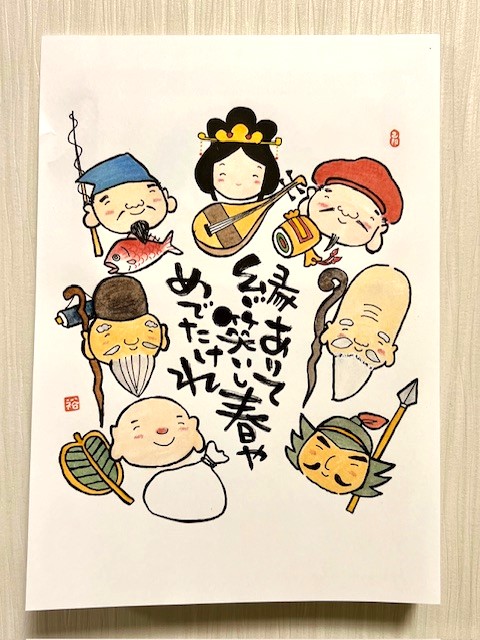 縁ありて
笑いし春や
めでたけれ